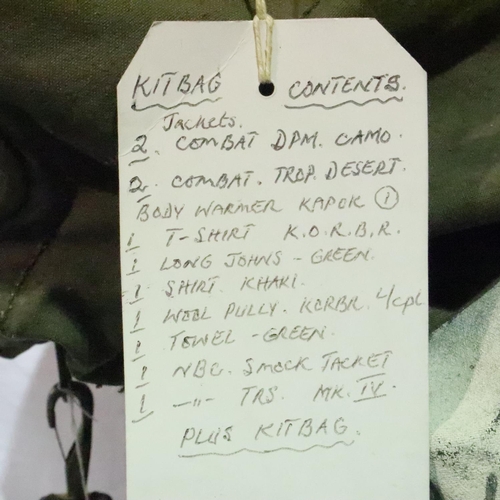 KITBAG CONTENTS.
Jackets.
2. COMBAT DPM. CAMO.
2. COMBAT. TROP. DESERT.
BODY WARMER KAPOK 1
1 T-SHIRT K.O.R.B.R.
1 LONG JOHNS - GREEN.
1 SHIRT. KHAKI.
1 WOOL PULLY. KORBR. L/cpl
1 TOWEL - GREEN.
1 NBC. SMOCK JACKET
1 —"— TRS. MK. IV.
PLUS KITBAG.